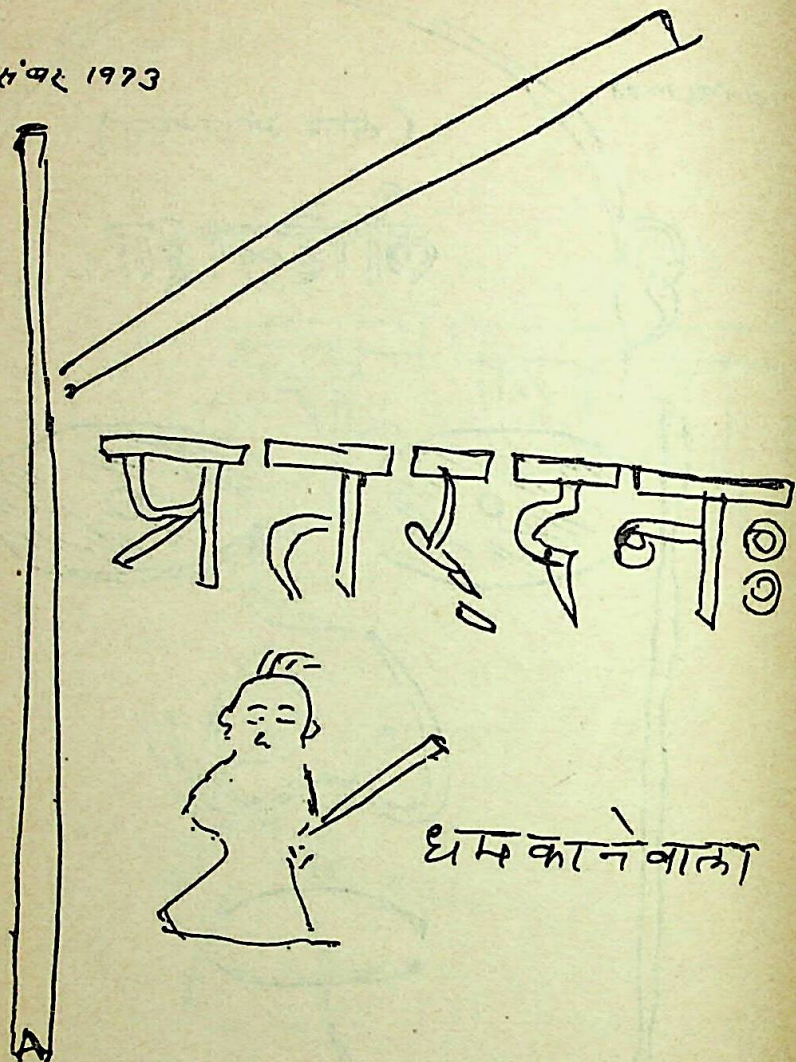 1973
प्रतर्दनः
धमकानेवाला